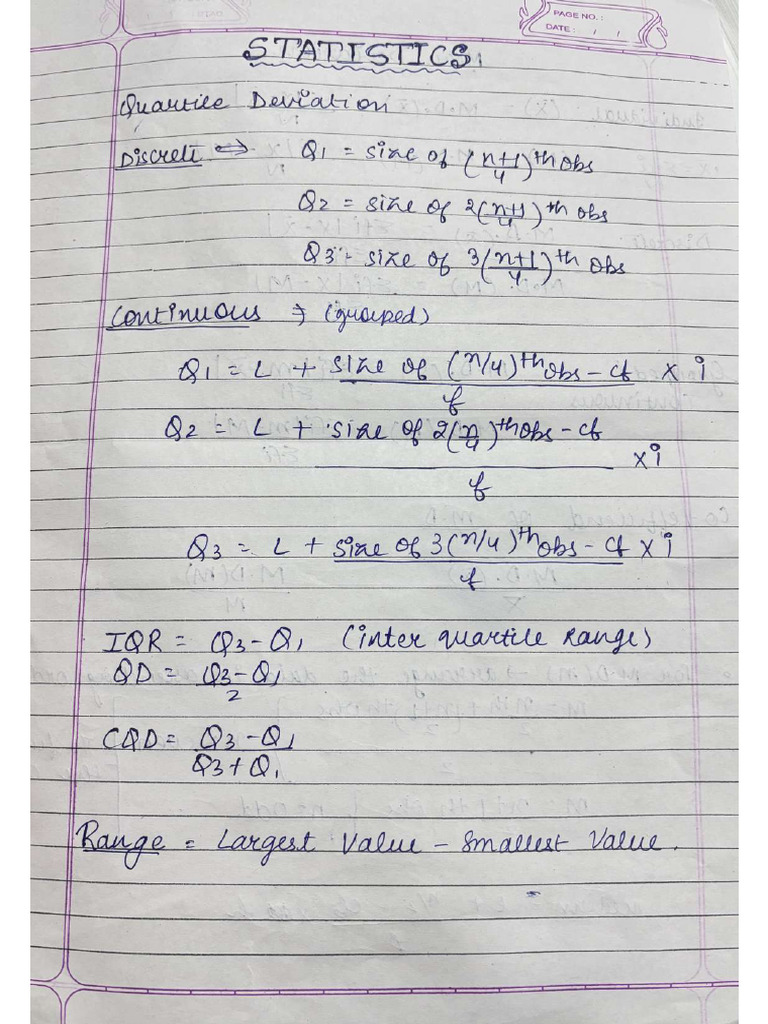 PAGE NO. :
DATE : / /
STATISTICS:
Quartile Deviation
Discrete ⇔ Q1 = size of (n+1/4)th obs
Q2 = size of 2(n+1/4)th obs
Q3 = size of 3(n+1/4)th obs
Continuous ⇒ (grouped)
Q1 = L + size of (n/4)th obs - cf / f × i
Q2 = L + size of 2(n/4)th obs - cf / f × i
Q3 = L + size of 3(n/4)th obs - cf / f × i
IQR = Q3 - Q1 (inter quartile range)
QD = Q3 - Q1 / 2
CQD = Q3 - Q1 / Q3 + Q1
Range = Largest Value - Smallest Value.